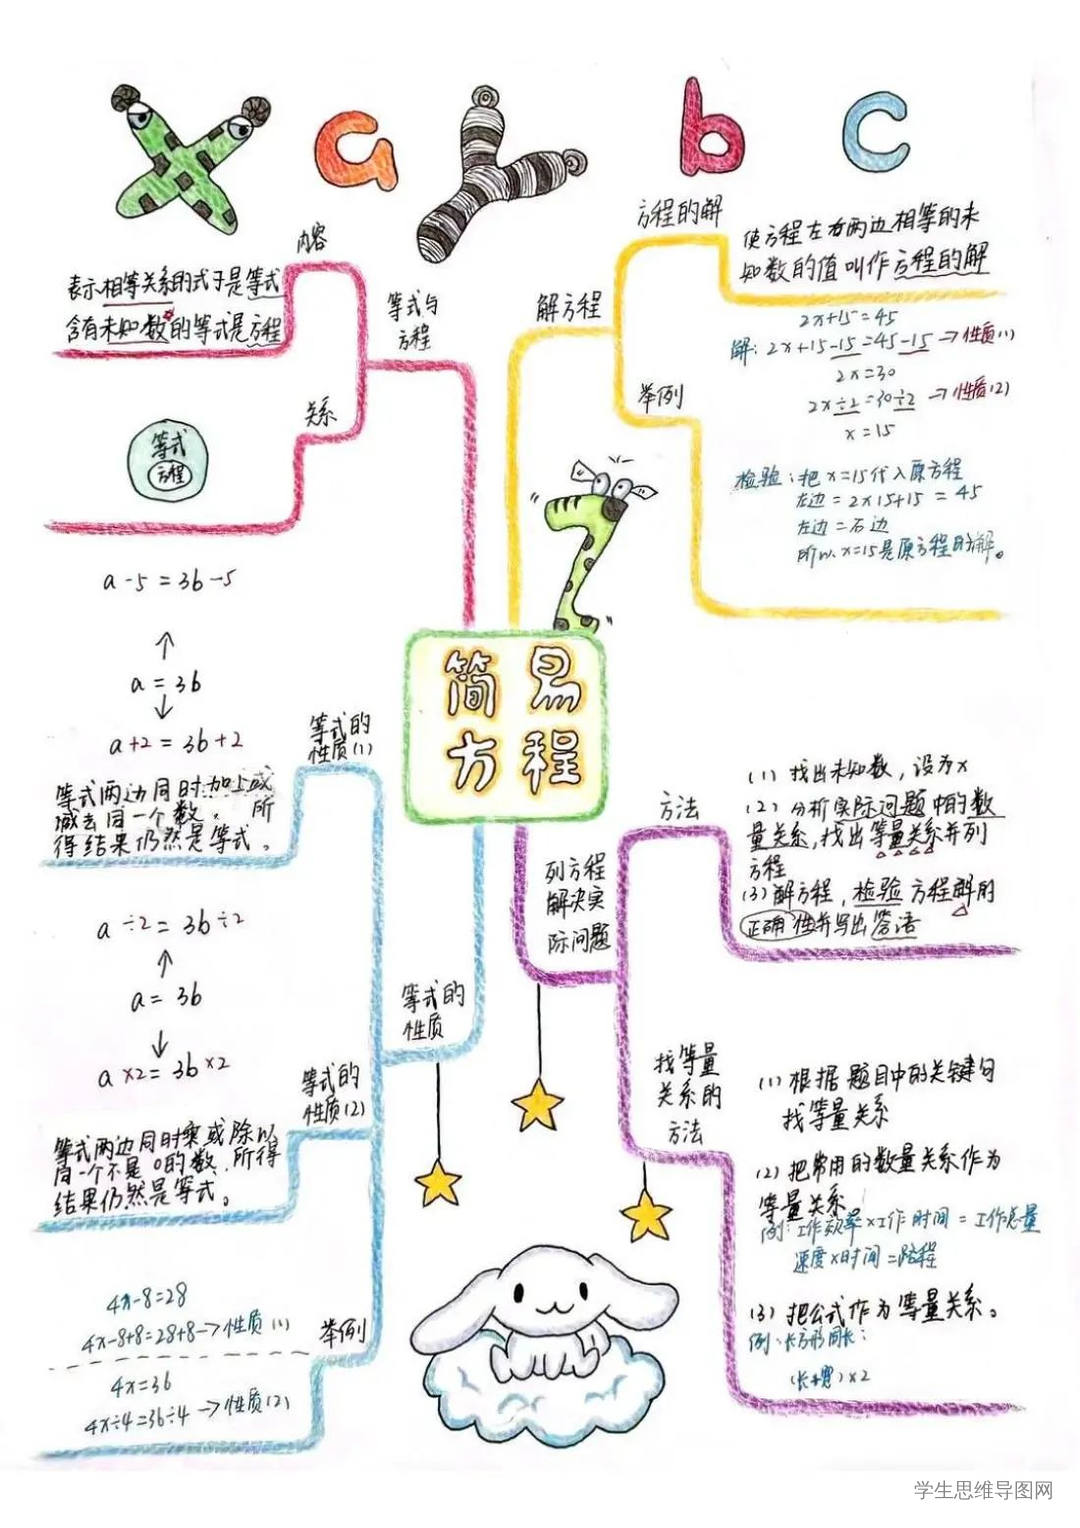 x a y b c
内容
表示相等关系的式子是等式
含有未知数的等式是方程
等式与
方程
关系
等式
方程
解方程
方程的解
使方程左右两边相等的未
知数的值叫作方程的解
举例
2x+15=45
解：2x+15-15=45-15→性质(1)
2x=30
2x÷2=30÷2→性质(2)
x=15
检验：把x=15代入原方程
左边=2×15+15=45
左边=右边
所以x=15是原方程的解。
简易
方程
等式的
性质
等式的
性质(1)
a-5=3b-5
↑
a=3b
↓
a+2=3b+2
等式两边同时加上或
减去同一个数，所
得结果仍然是等式。
等式的
性质(2)
a÷2=3b÷2
↑
a=3b
↓
a×2=3b×2
等式两边同时乘或除以
同一个不是0的数，所得
结果仍然是等式。
举例
4x-8=28
4x-8+8=28+8→性质(1)
4x=36
4x÷4=36÷4→性质(2)
列方程
解决实
际问题
方法
(1)找出未知数，设为x
(2)分析实际问题中的数
量关系，找出等量关系并列
方程
(3)解方程，检验方程解的
正确性并写出答语
找等量
关系的
方法
(1)根据题目中的关键句
找等量关系
(2)把常用的数量关系作为
等量关系
例：工作效率×工作时间=工作总量
速度×时间=路程
(3)把公式作为等量关系。
例：长方形周长：
(长+宽)×2
学生思维导图网